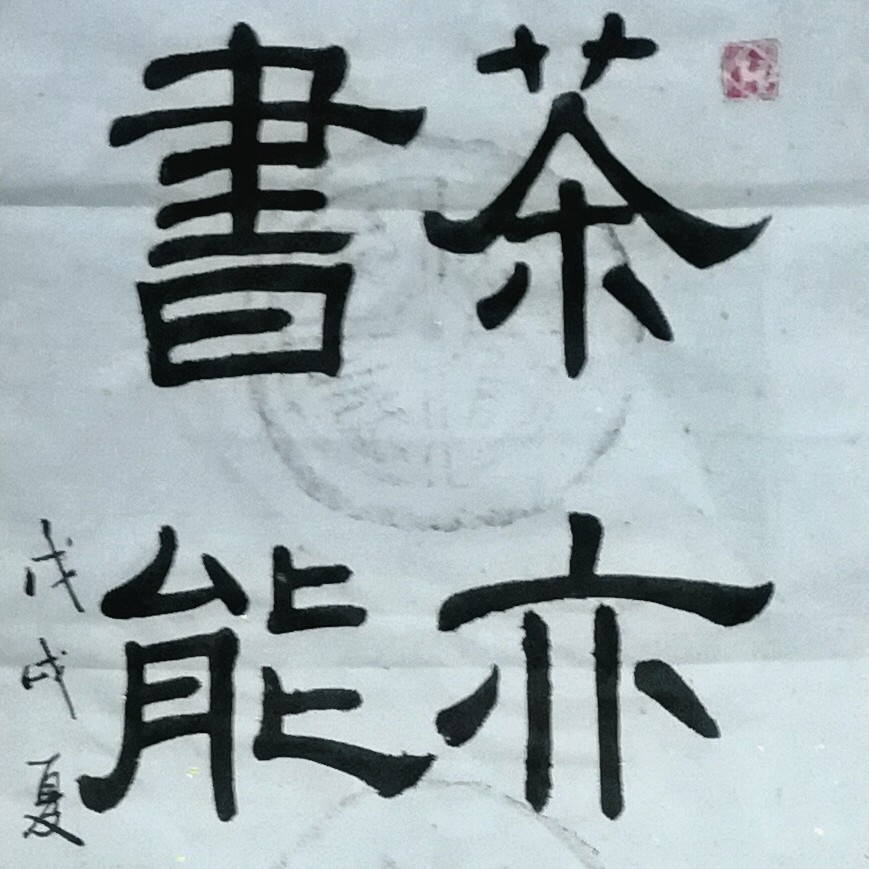 茶亦
書能
戊戌夏